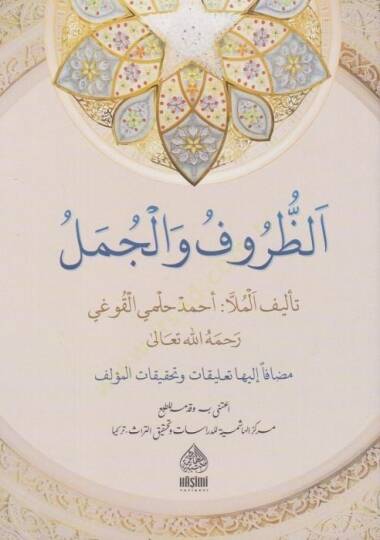 اَلظُّرُوفُ وَالْجُمَلُ
تأليف اَلْمُلاَّ: أحمدْ حلْمي الْقُوغي
رَحمَهُ الله تعَالىٰ
مضافاً إليها تعليقات وتحقيقات المؤلف
اعتنى به وقدمه للطبع
مركز الهاشمية للدراسات وتحقيق التراث، تركيا
HÂŞİMİ